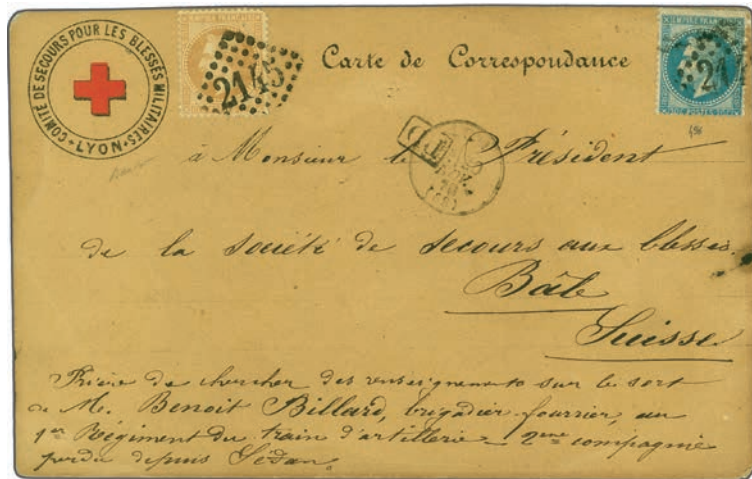 COMITÉ DE SECOURS POUR LES BLESSÉS MILITAIRES
• LYON •
EMPIRE FRANC
2145
Carte de Correspondance
EMPIRE FRANC
214
PD
à Monsieur le Président
de la Société de Secours aux blessés
Bâle
Suisse
Prière de chercher des renseignements sur le sort
de M. Benoit Billard, brigadier fourrier, au
1er Régiment du train d'artillerie _ 2eme compagnie
perdu depuis Sédan.